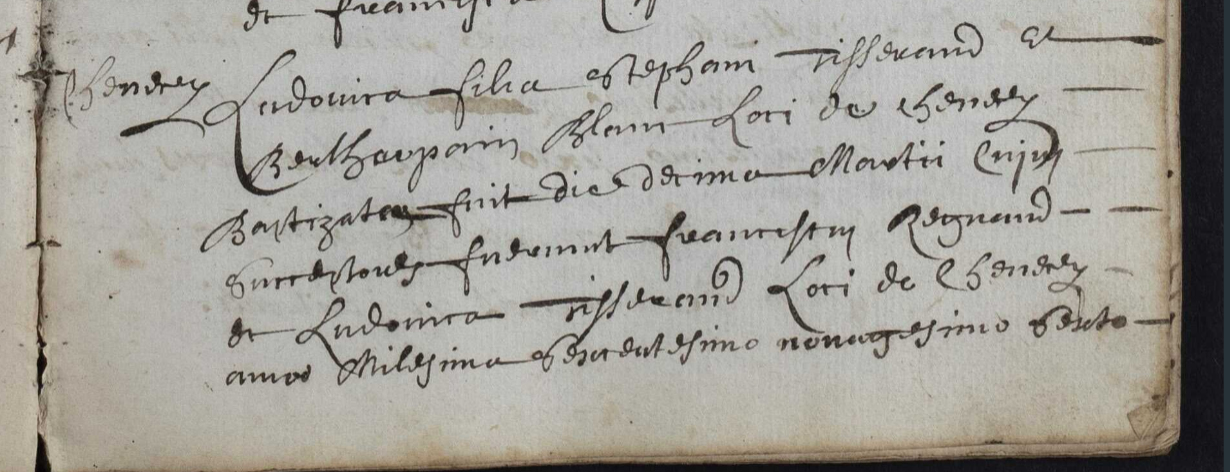 et francisc
Chenecey
Ludovica filia Stephani Tisserand Et
Blanc Loci de Chenecey
Baptizata fuit die decima Martii Cujus
Susceptores fuerunt franciscus Regnaud
et Ludovica Tisserand Loci de Chenecey
anno Milesimo Sexcentesimo nonagesimo Sexto